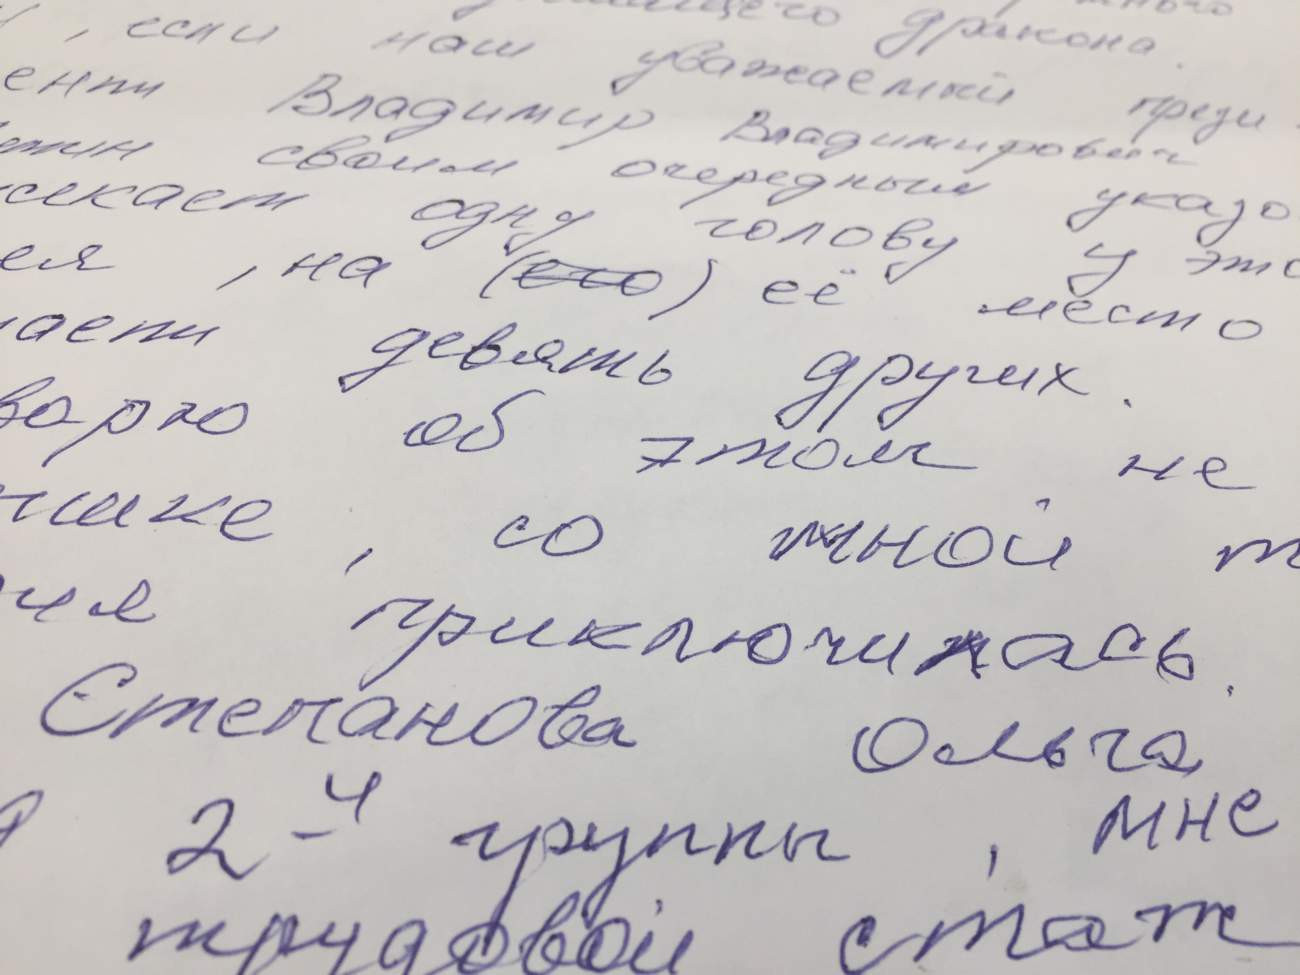 дракона.
, если наш уважаемый прези
енти Владимир Владимирович
своим очередным указо
секает одну голову у это
ея, на (его) её место
даети девять других.
ворю об этом не
нишке, со мной т
приключилась.
Степанова Ольга
2-й группы, мне
трудовой стаж